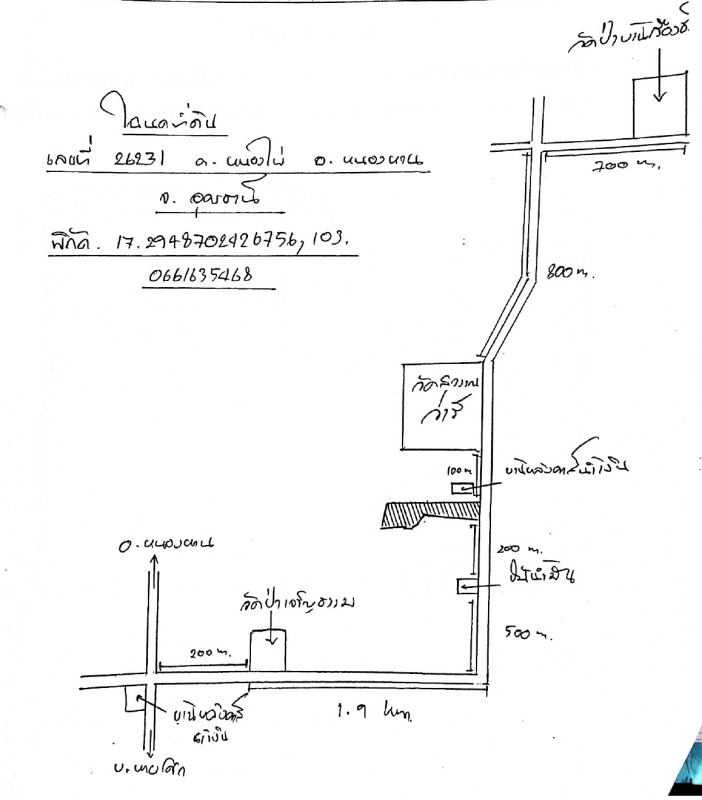 วัดป่าบาน
โฉนดที่ดิน
เลขที่ 26231 ต. หนองไผ่ อ. หนองหาน
จ. อุดรธานี
พิกัด. 17.2948702426756, 103.
0661635468
700 ม.
800 ม.
วัดสุวรรณ
วารี
100 ม
บ้านหลังคาสีน้ำเงิน
200 ม.
ปั๊มน้ำมัน
500 ม.
อ. หนองหาน
วัดป่าเจริญธรรม
200 ม.
1.9 กม.
บ้านหลังคาสี
น้ำเงิน